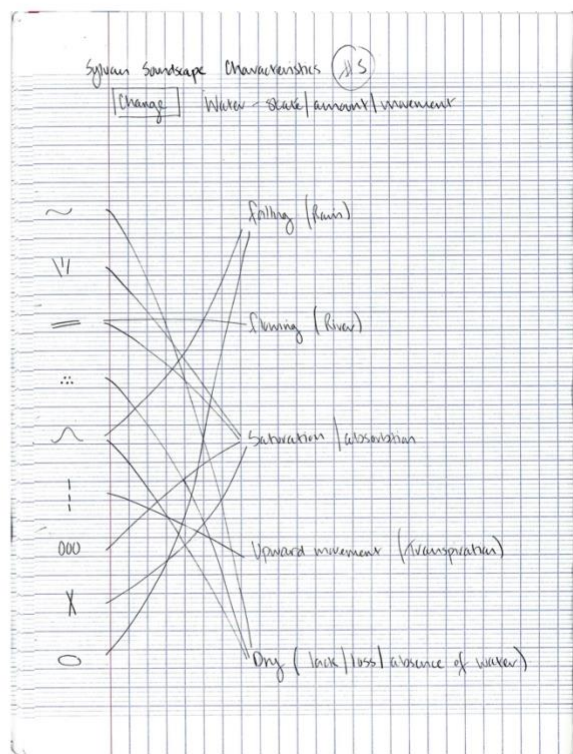 Sylvan Soundscape Characteristics
Change Water - state/amount/movement
falling (Rain)
flowing (River)
Saturation/absorbtion
Upward movement (Transpiration)
Dry (lack/loss/absence of water)